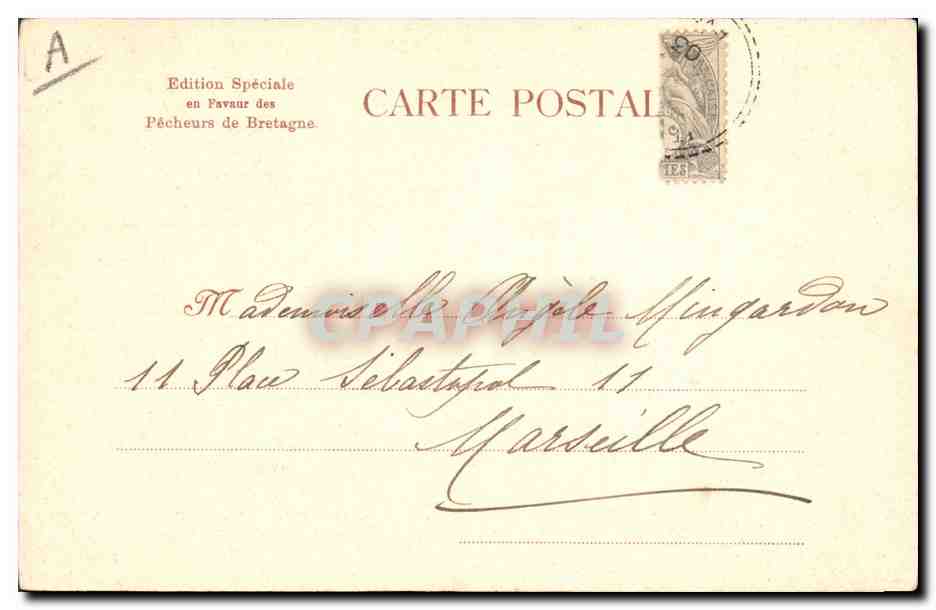 A
Edition Spéciale
en Favaur des
Pêcheurs de Bretagne.
CARTE POSTAL
03
IES
Mademoiselle Angèle Mingardon
CPAPHIL
11 Place Sébastopol 11
Marseille